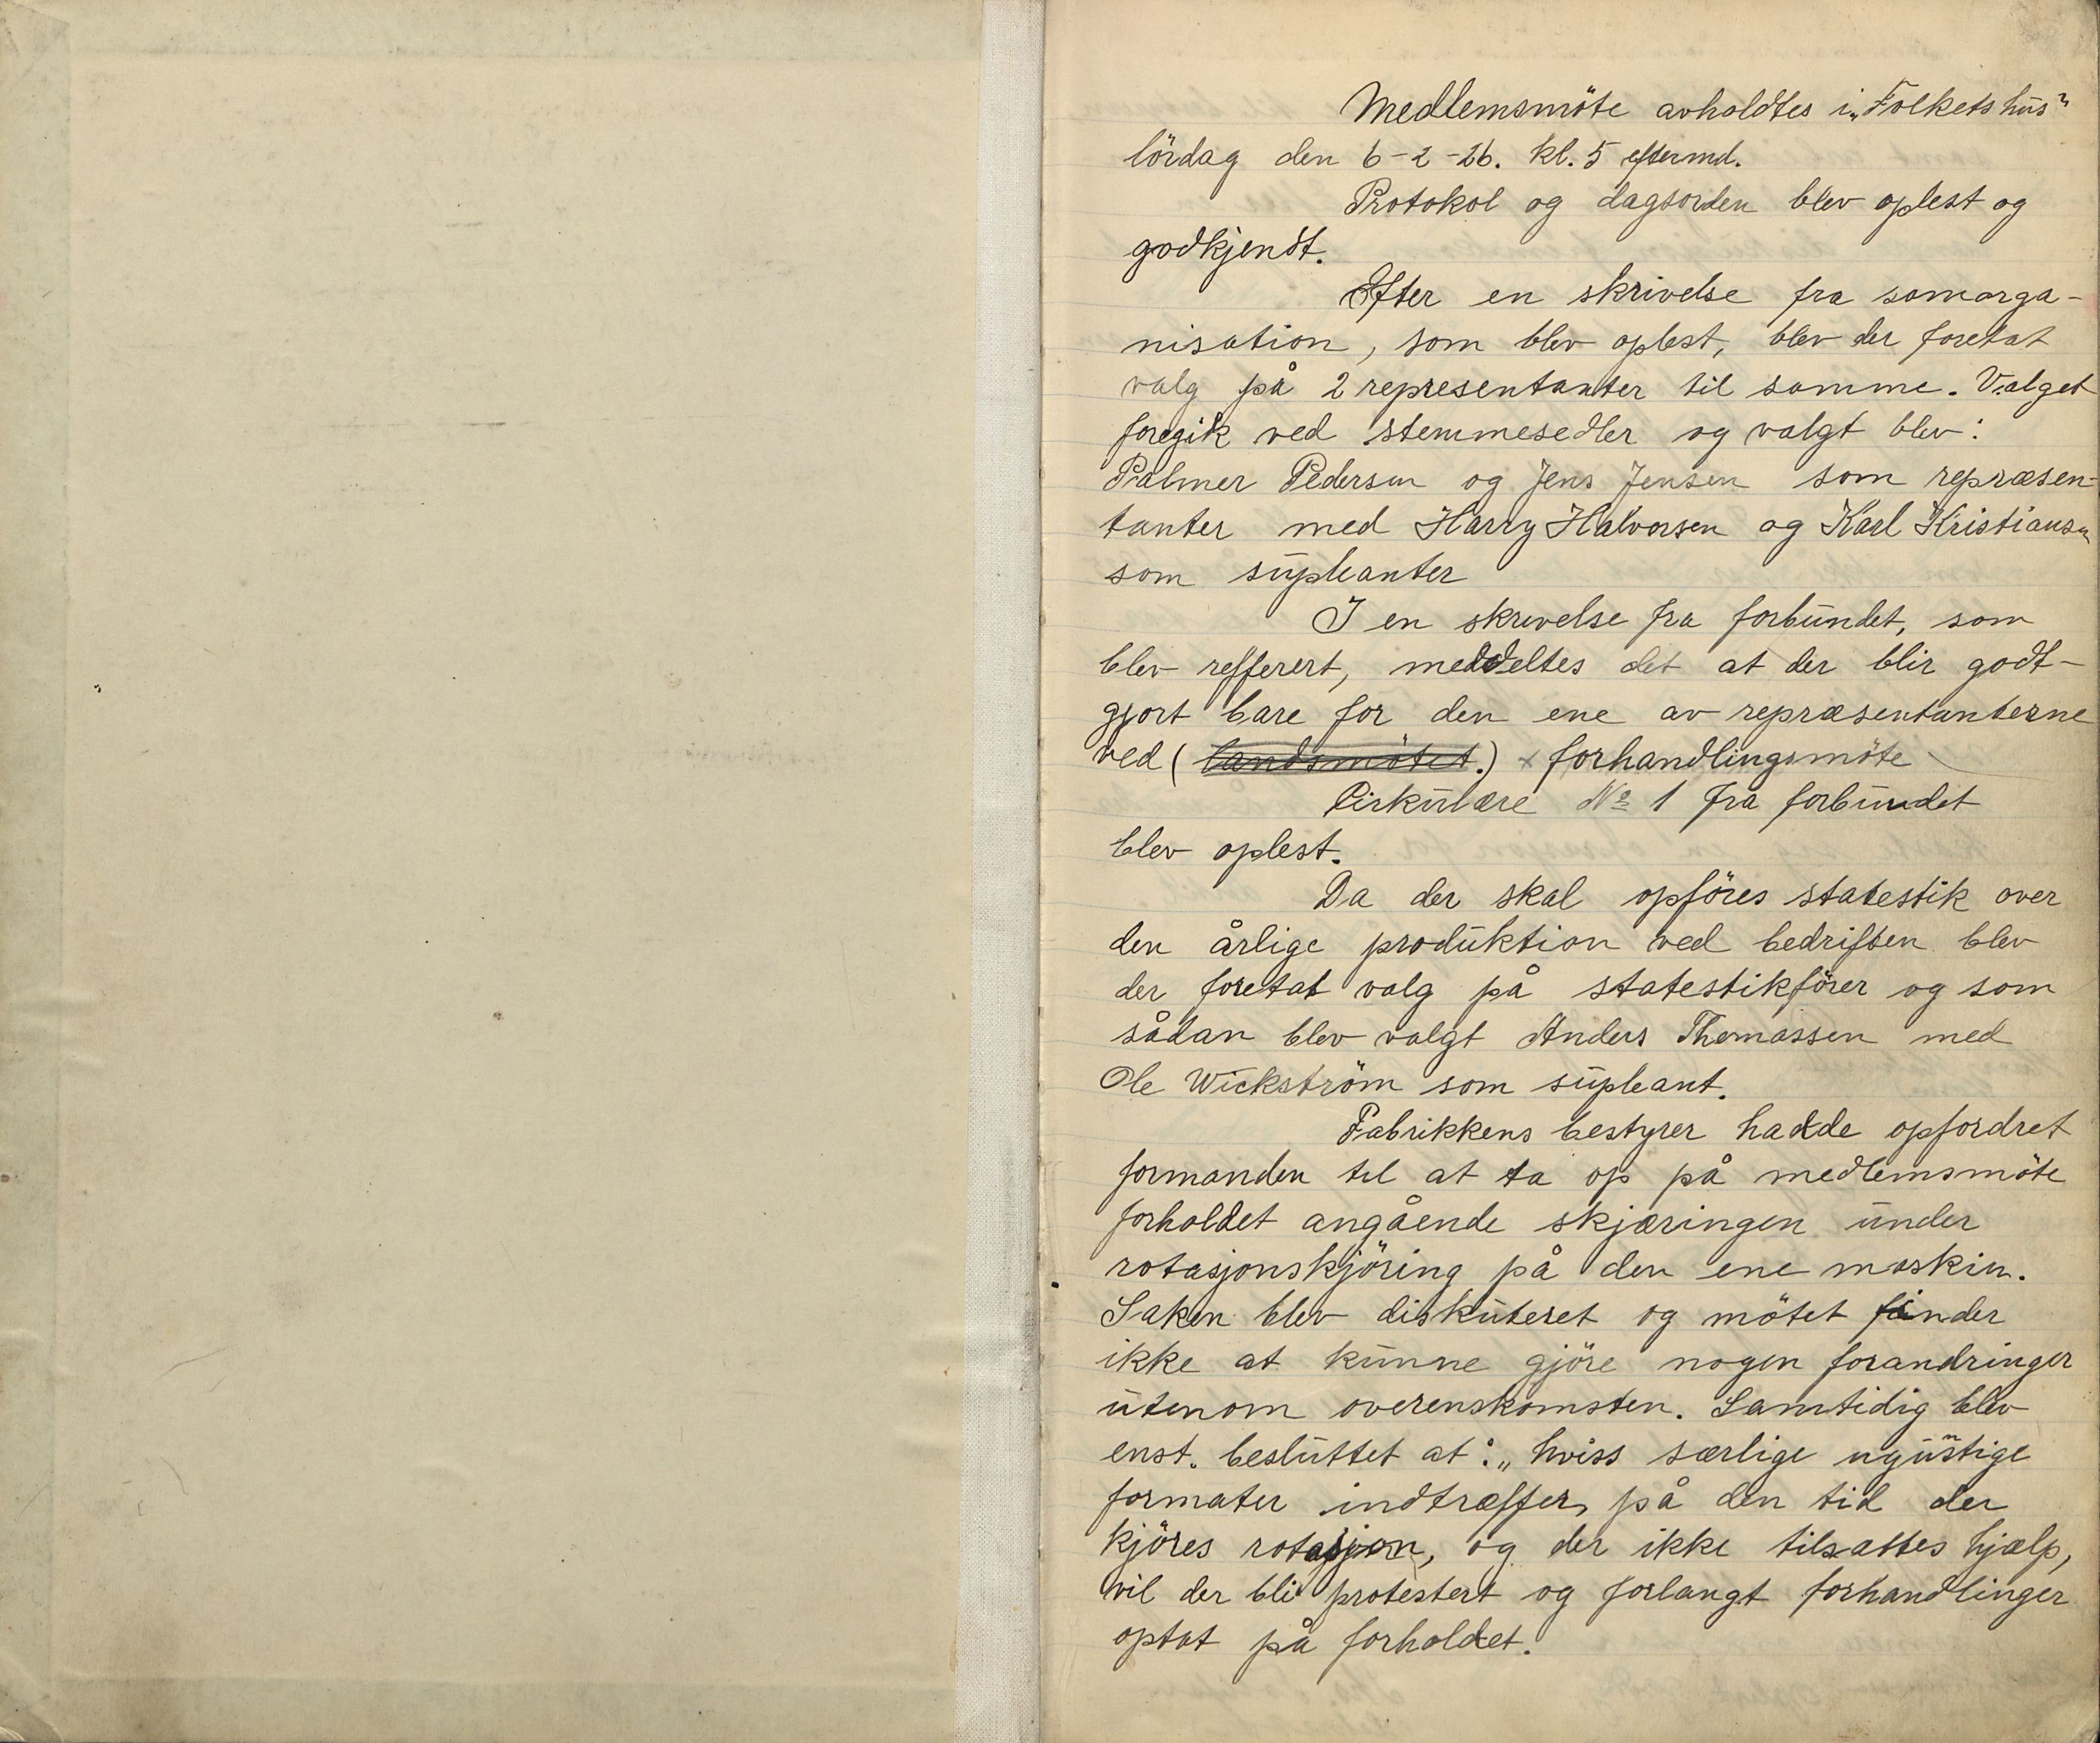 Medlemsmöte avholdtes i „Folkets hus"
lördag den 6-2-26. kl. 5 eftermd.
Protokol og dagsorden blev oplest og
godkjendt.
Efter en skrivelse fra samorga-
nisation, som blev oplest, blev der foretat
valg på 2 representanter til samme. Valget
foregik ved stemmesedler og valgt blev:
Palmer Pedersen og Jens Jensen som repræsen-
tanter med Harry Halvorsen og Karl Kristiansen
som supleanter
I en skrivelse fra forbundet, som
blev refferert, meddeltes det at der blir godt-
gjort bare for den ene av repræsentanterne
ved (landsmötet.) x forhandlingsmöte
Cirkulære No 1 fra forbundet
blev oplest.
Da der skal opföres statestik over
den årlige produktion ved bedriften blev
der foretat valg på statestikförer og som
sådan blev valgt Anders Thomassen med
Ole Wickström som supleant.
Fabrikkens bestyrer hadde opfordret
formanden til at ta op på medlemsmöte
forholdet angående skjæringen under
rotasjonskjöring på den ene maskin.
Saken blev diskuteret og mötet finder
ikke at kunne gjöre nogen forandringer
utenom overenskomsten. Samtidig blev
enst. besluttet at: „hviss særlige ugunstige
formater indtræffer, på den tid der
kjöres rotasjon, og der ikke tilsættes hjælp,
vil der bli protestert og forlangt forhandlinger
optat på forholdet.